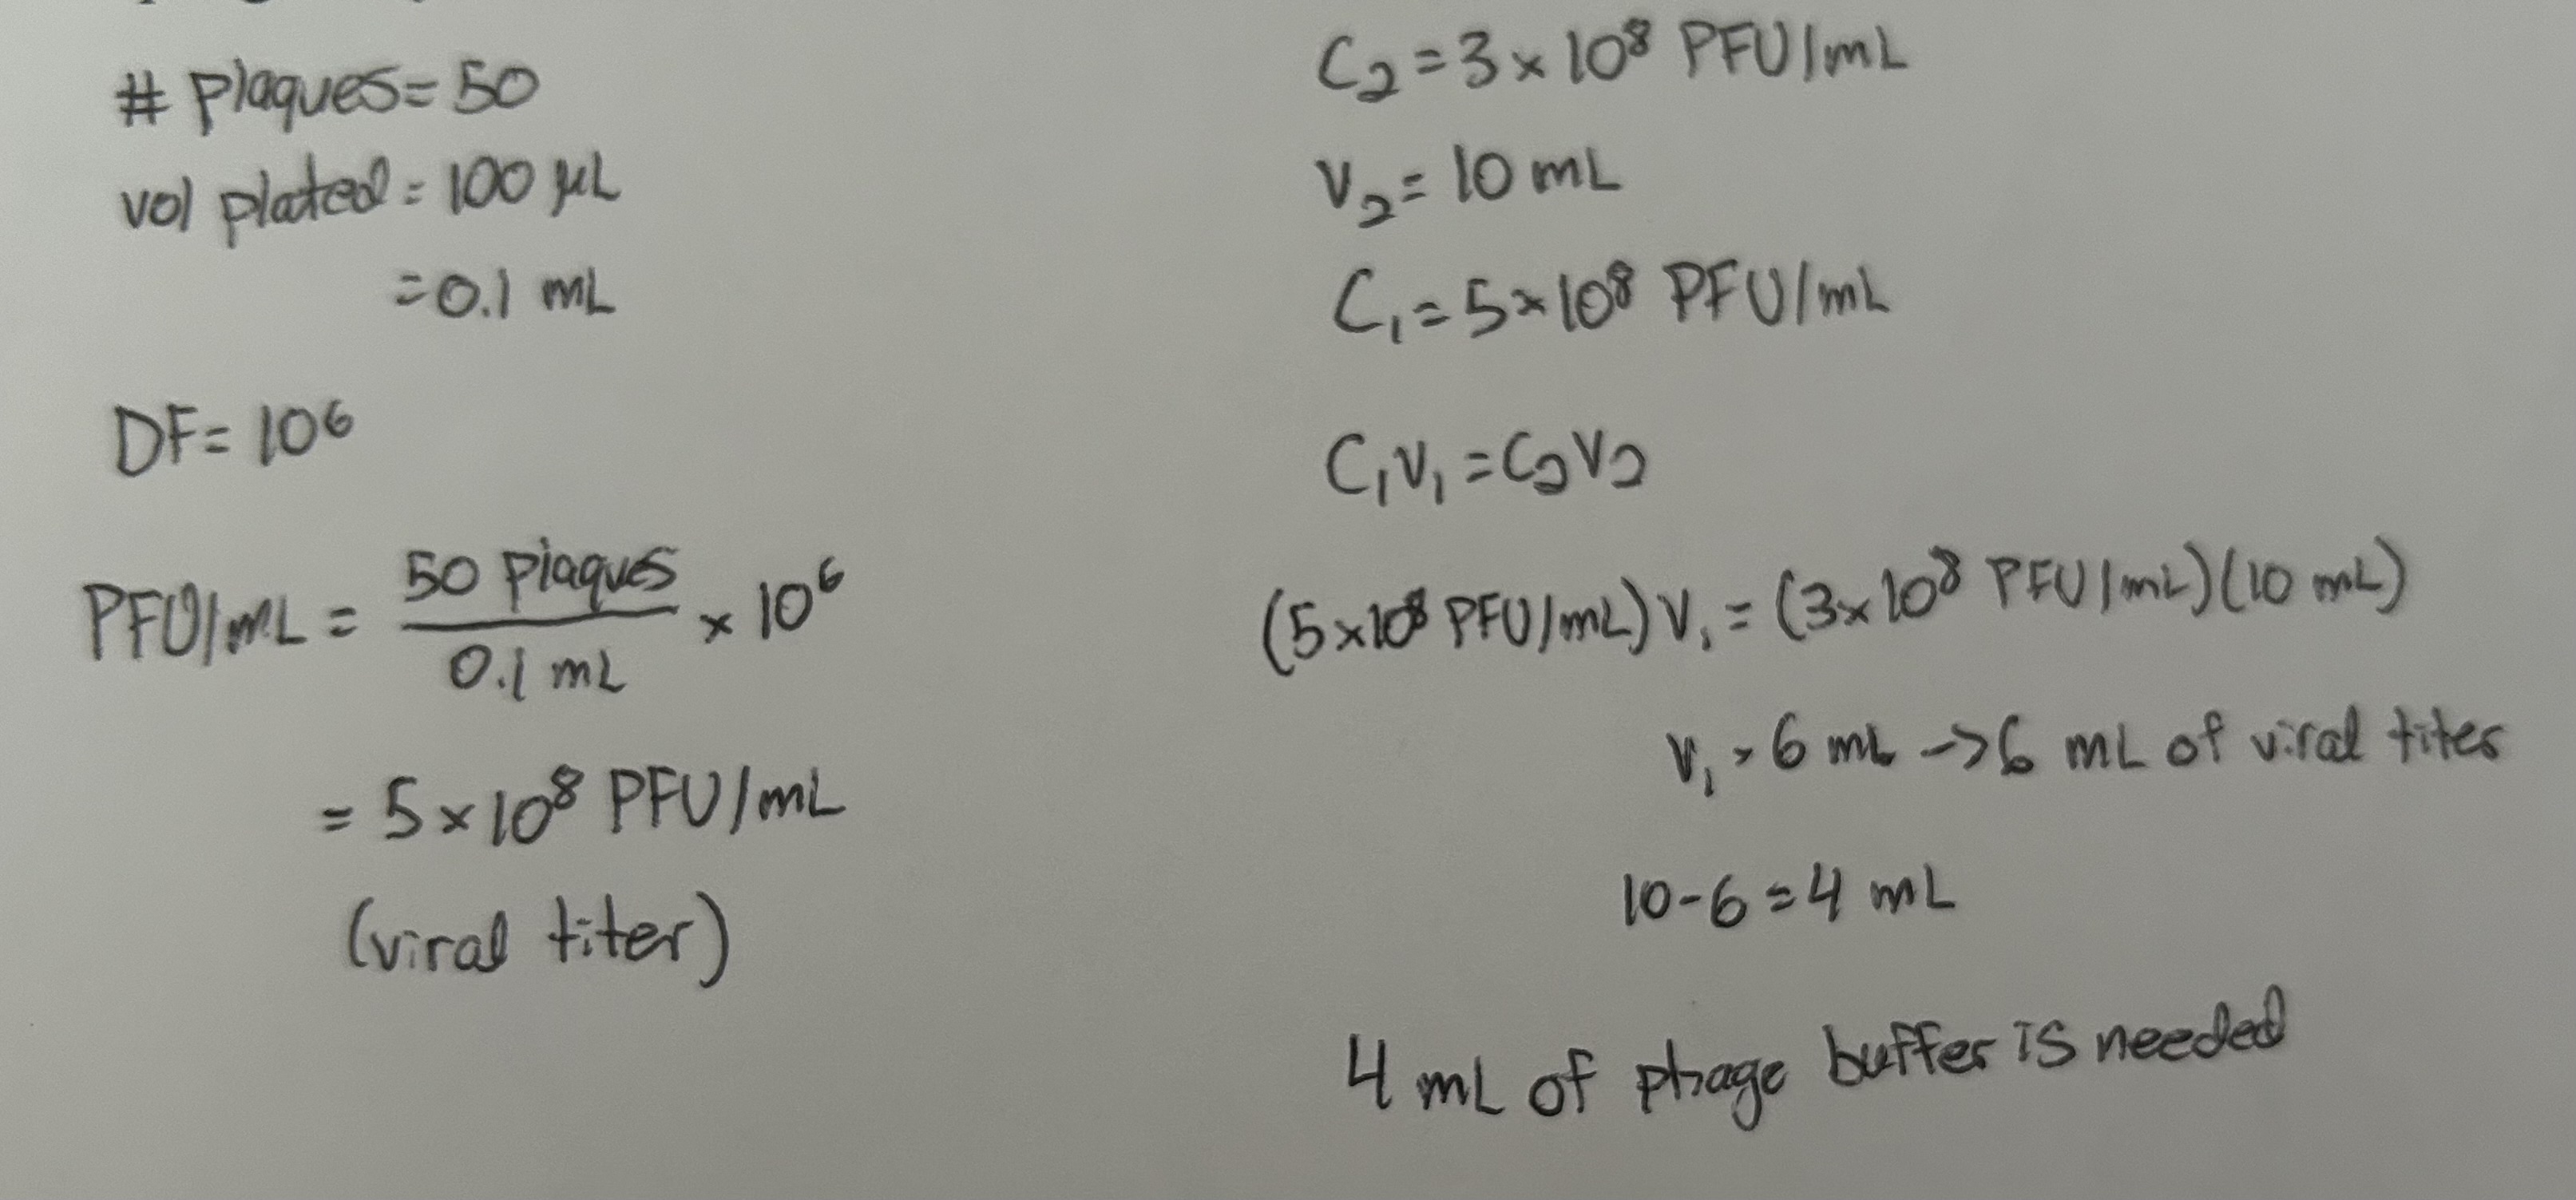 # plaques = 50
vol plated = 100 µL
= 0.1 mL
DF = 10⁶
PFU/mL = 50 plaques / 0.1 mL × 10⁶
= 5 × 10⁸ PFU/mL
(viral titer)
C₂ = 3 × 10⁸ PFU/mL
V₂ = 10 mL
C₁ = 5 × 10⁸ PFU/mL
C₁V₁ = C₂V₂
(5 × 10⁸ PFU/mL) V₁ = (3 × 10⁸ PFU/mL)(10 mL)
V₁ = 6 mL → 6 mL of viral titer
10 - 6 = 4 mL
4 mL of phage buffer is needed